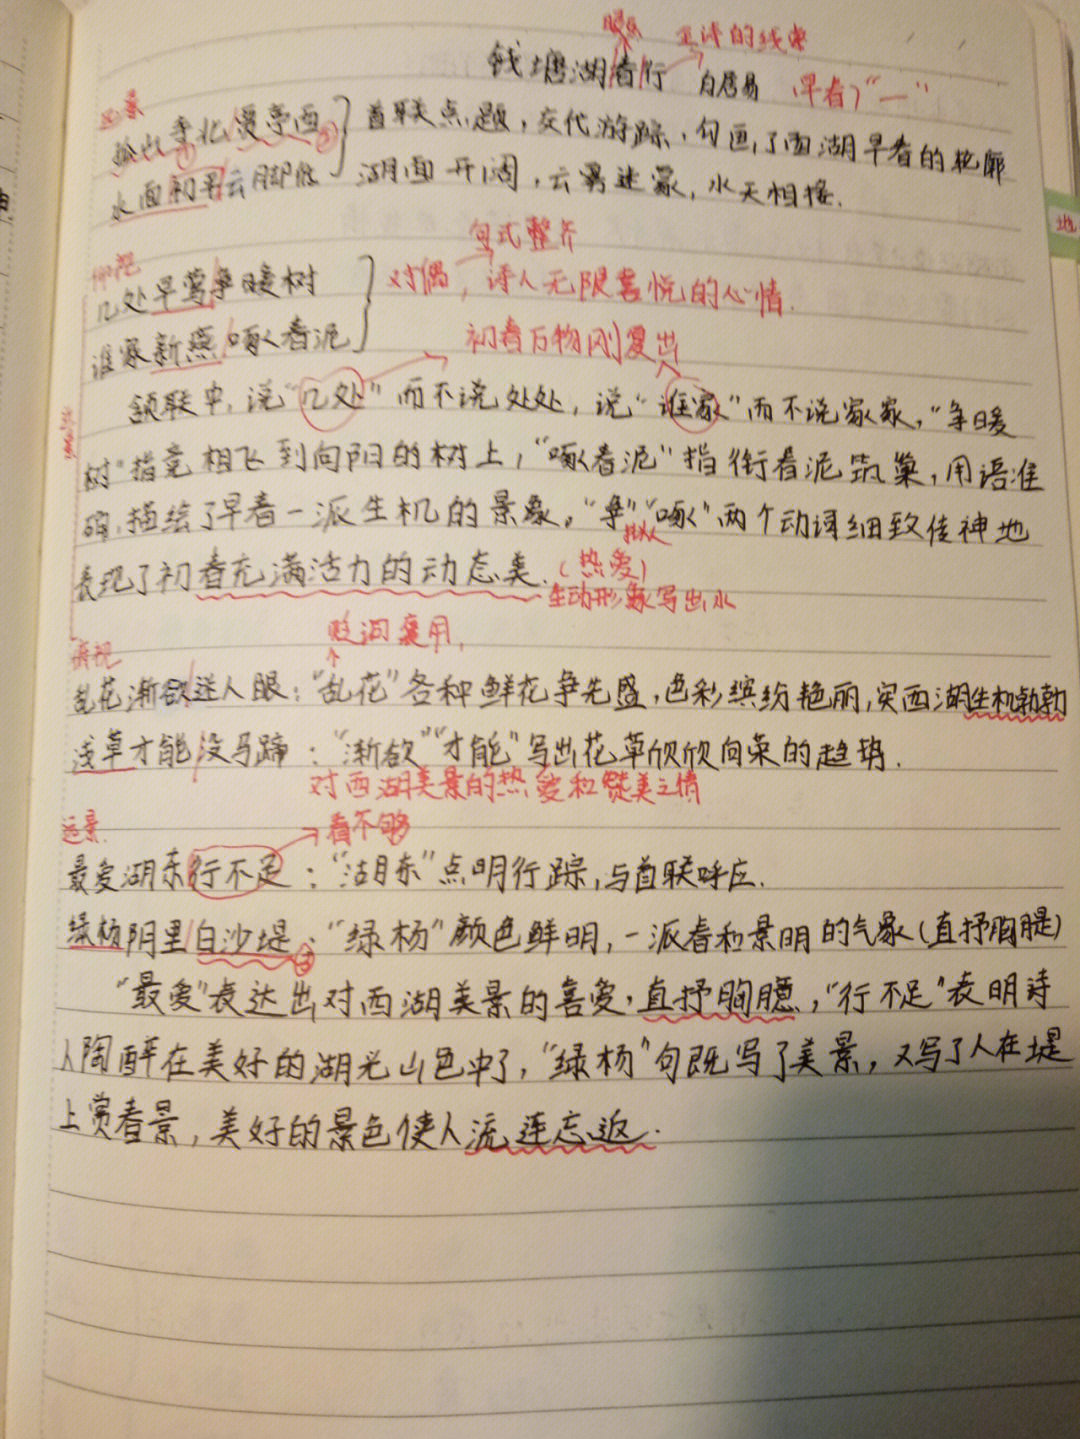 眼 全诗的线索
钱塘湖春行 白居易 早春

孤山寺北贾亭西 首联点题，交代游踪，勾画了西湖早春的轮廓
① ②
水面初平云脚低 湖面开阔，云雾迷蒙，水天相接.
句式整齐
仰视
几处早莺争暖树 对偶，诗人无限喜悦的心情.
谁家新燕啄春泥 初春万物刚复出
颔联中，说“几处”而不说处处，说“谁家”而不说家家，“争暖
树”指竞相飞到向阳的树上，“啄春泥”指衔春泥筑巢，用语准
确，描绘了早春一派生机的景象。“争”“啄”两个动词细致传神地
拟人
表现了初春充满活力的动态美.（热爱）
生动形象写出
贬词褒用，
俯视
乱花渐欲迷人眼：“乱花”各种鲜花争先盛，色彩缤纷艳丽，突西湖生机勃勃
浅草才能没马蹄：“渐欲”“才能”写出花草欣欣向荣的趋势.
对西湖美景的热爱和赞美之情
远景. 看不够
最爱湖东行不足：“湖东”点明行踪，与首联呼应.
绿杨阴里白沙堤：“绿杨”颜色鲜明，一派春和景明的气象（直抒胸臆）
③
“最爱”表达出对西湖美景的喜爱，直抒胸臆，“行不足”表明诗
人陶醉在美好的湖光山色中了，“绿杨”句既写了美景，又写了人在堤
上赏春景，美好的景色使人流连忘返.
地